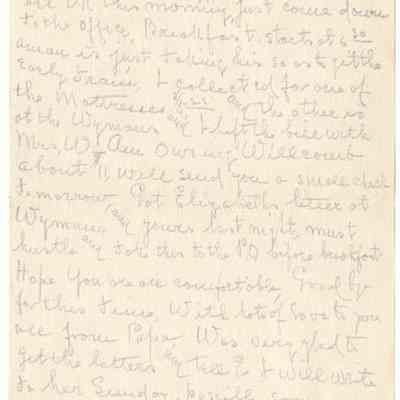 all OK this morning just come down
to the office, Breakfast starts at 6 30
a man is just taking his so as to get the
Early train, I collected for one of
the Mattresses the other is
at the Wymans I left the bill with
Mrs. W. Am owing Willcomb
about $11, will send you a small check
tomorrow Got Elizabeths letter at
Wymans and yours last night, must
hustle and take this to the PO before breakfast
Hope you are comfortable, Good bye
for this time, With lots of love to you
all from Papa Was very glad to
get the letters and tell E I will write
to her Sunday,